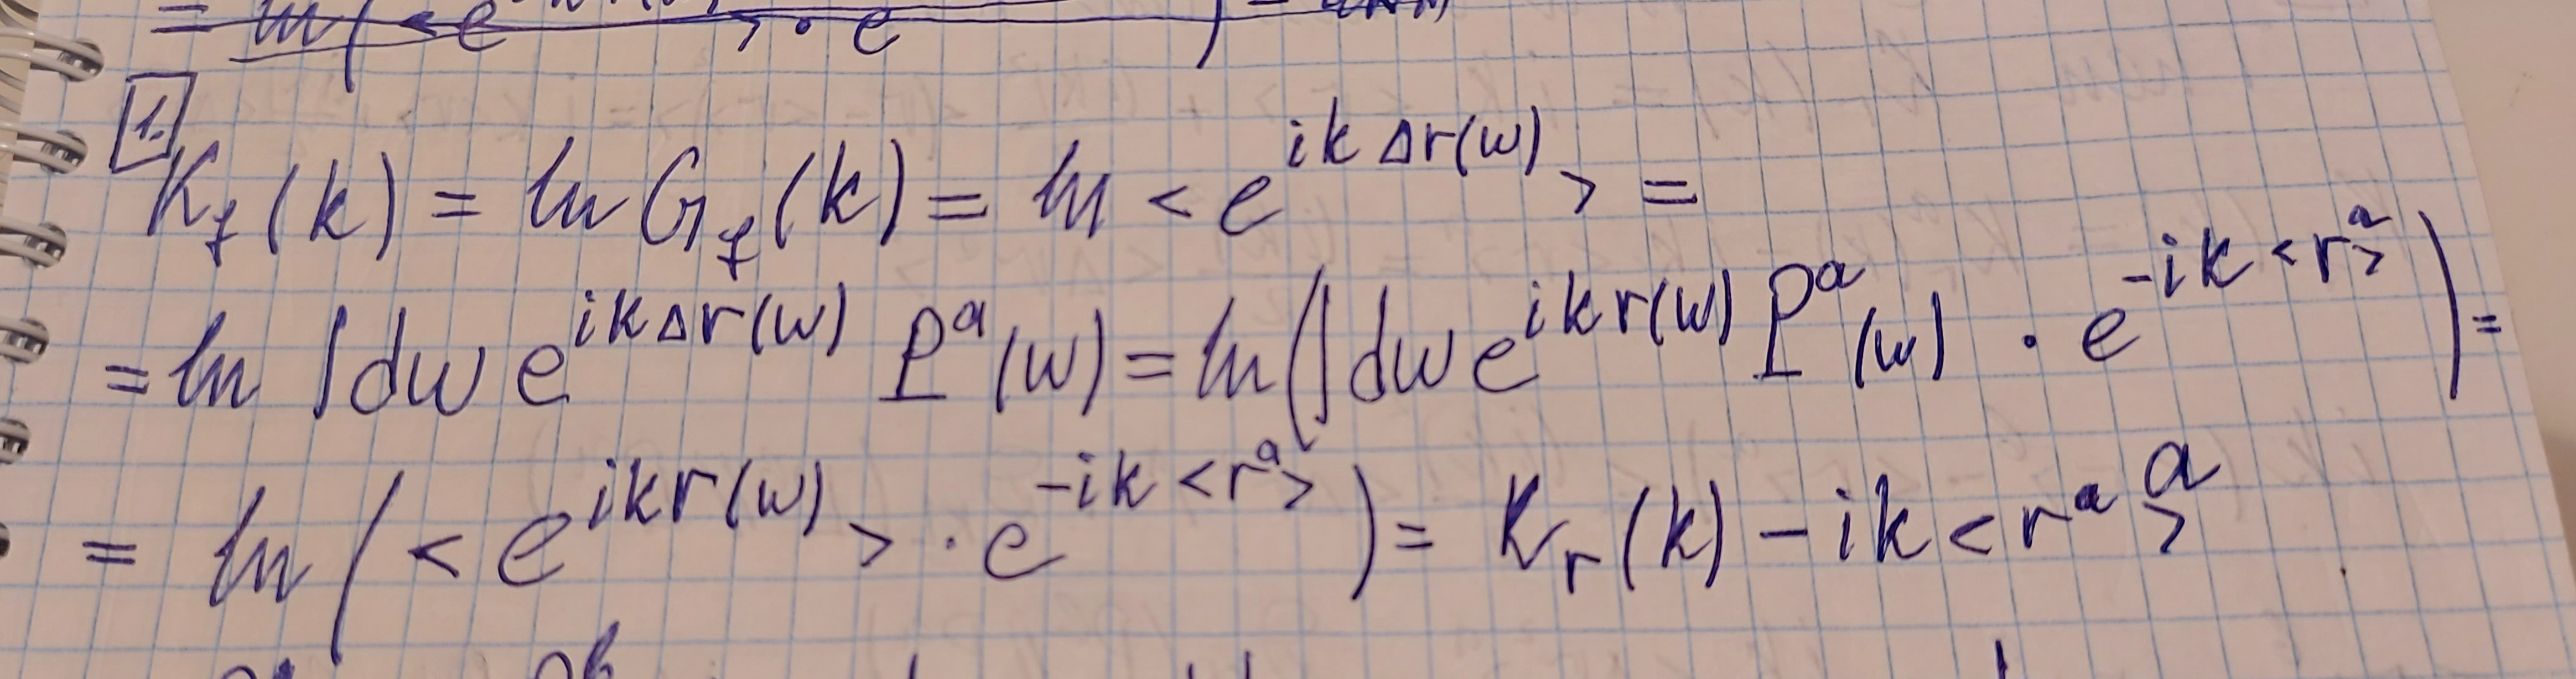 = ln(<e > · e ) =
1.
K_f(k) = ln G_f(k) = ln <e^{ikΔr(w)}> =
= ln ∫dw e^{ikΔr(w)} P^a(w) = ln(∫dw e^{ikr(w)} P^a(w) · e^{-ik<r>^a}) =
= ln(<e^{ikr(w)}> · e^{-ik<r^a>}) = K_r(k) - ik<r^a>^a